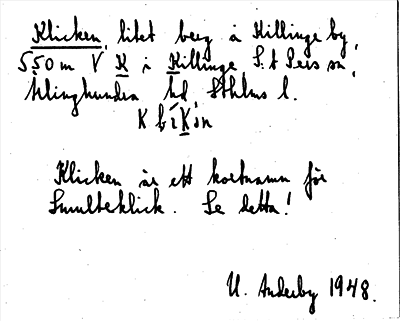 Klicken, litet berg å Killinge by,
550 m V K i Killinge S:t Pers sn,
Ärlinghundra hd, Sthlms l.
Klicken är ett kortnamn för
Smulteklick. Se detta!
U. Anderby 1948.